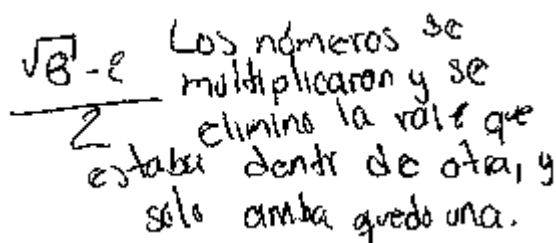 √8 - e / 2
Los números se
multiplicaron y se
elimino la raíz que
estaba dentr de otra, y
solo arriba quedo una.